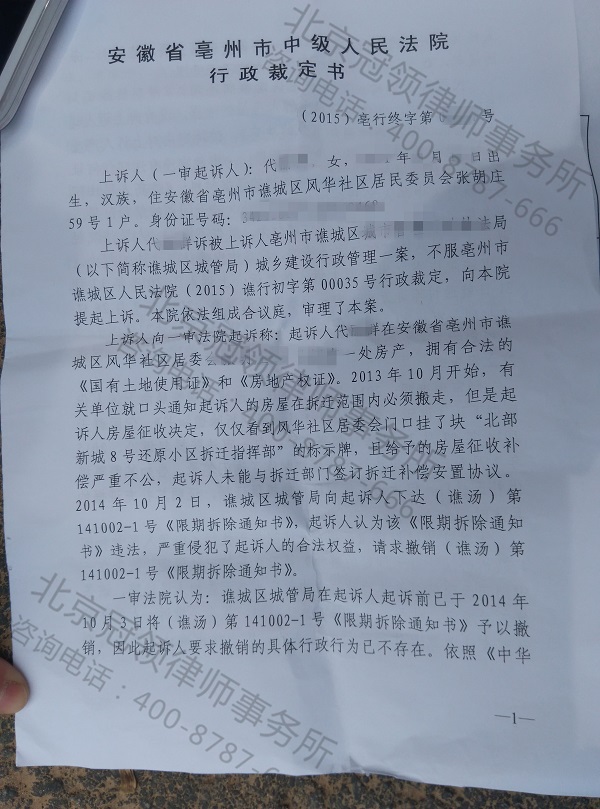 安徽省亳州市中级人民法院
行政裁定书
（2015）亳行终字第 号
上诉人（一审起诉人）：代 女， 年 月 日出
生，汉族，住安徽省亳州市谯城区风华社区居民委员会张胡庄
59号1户。身份证号码：
上诉人代 诉被上诉人亳州市谯城区 局
（以下简称谯城区城管局）城乡建设行政管理一案，不服亳州市
谯城区人民法院（2015）谯行初字第00035号行政裁定，向本院
提起上诉。本院依法组成合议庭，审理了本案。
上诉人向一审法院起诉称：起诉人代 在安徽省亳州市谯
城区风华社区居委 一处房产，拥有合法的
《国有土地使用证》和《房地产权证》。2013年10月开始，有
关单位就口头通知起诉人的房屋在拆迁范围内必须搬走，但是起
诉人房屋征收决定，仅仅看到风华社区居委会门口挂了块“北部
新城8号还原小区拆迁指挥部”的标示牌，且给予的房屋征收补
偿严重不公，起诉人未能与拆迁部门签订拆迁补偿安置协议。
2014年10月2日，谯城区城管局向起诉人下达（谯汤）第
141002-1号《限期拆除通知书》，起诉人认为该《限期拆除通知
书》违法，严重侵犯了起诉人的合法权益，请求撤销（谯汤）第
141002-1号《限期拆除通知书》。
一审法院认为：谯城区城管局在起诉人起诉前已于2014年
10月3日将（谯汤）第141002-1号《限期拆除通知书》予以撤
销，因此起诉人要求撤销的具体行政行为已不存在。依照《中华
—1—
北京冠领律师事务所
咨询电话：400-8787-666
北京冠领律师事务所
咨询电话：400-8787-666
北京冠领律师事务所
咨询电话：400-8787-666